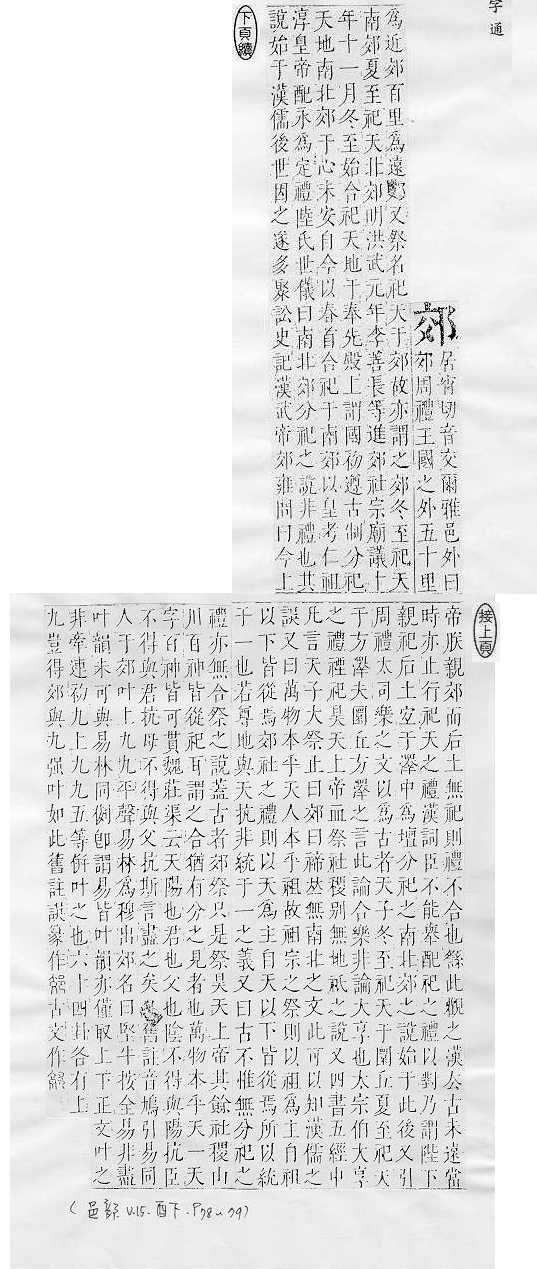 字通
郊
居肴切音交爾雅邑外曰
郊周禮王國之外五十里
爲近郊百里爲遠郊又祭名祀天于郊故亦謂之郊冬至祀天
南郊夏至祀天北郊明洪武元年李善長等進郊社宗廟議十
年十一月冬至始合祀天地于奉先殿上謂國初遵古制分祀
天地南北郊于心未安自今以春首合祀于南郊以皇考仁祖
淳皇帝配永爲定禮陸氏世儀曰南北郊分祀之說非禮也其
說始于漢儒後世因之遂多聚訟史記漢武帝郊雍問曰今上
下頁續
接上頁
帝朕親郊而后土無祀則禮不合也繇此觀之漢去古未遠當
時亦止行祀天之禮漢詞臣不能舉配祀之禮以對乃謂陛下
親祀后土宜于澤中爲壇分祀之南北郊之說始于此後又引
周禮大司樂之文以爲古者天子冬至祀天于圜丘夏至祀天
于方澤夫圜丘方澤之言此論合樂非論大享也大宗伯大享
之禮禋祀昊天上帝血祭社稷别無地祇之說又四書五經中
凡言天子大祭止曰郊曰禘並無南北之文此可以知漢儒之
誤又曰萬物本乎天人本乎祖故祖宗之祭則以祖爲主自祖
以下皆從焉郊社之禮則以天爲主自天以下皆從焉所以統
于一也若尊地與天抗非統于一之義又曰古不惟無分祀之
禮亦無合祭之說蓋古者郊祭只是祭昊天上帝其餘社稷山
川百神皆從祀耳謂之合猶有分之見者也萬物本乎天一天
字百神皆可貫魏莊渠云天陽也君也父也陰不得與陽抗臣
不得與君抗母不得與父抗斯言盡之矣 舊註音鳩引易同
人于郊叶上九九平聲易林爲穆出郊名曰堅牛按全易非盡
叶韻未可與易林同例卽謂易皆叶韻亦僅取上下正文叶之
非牽連初九上九九五等併叶之也六十四卦各有上
九豈得郊與九强叶如此舊註誤篆作 古文作
(邑部 V.15. 酉下. P78~79)